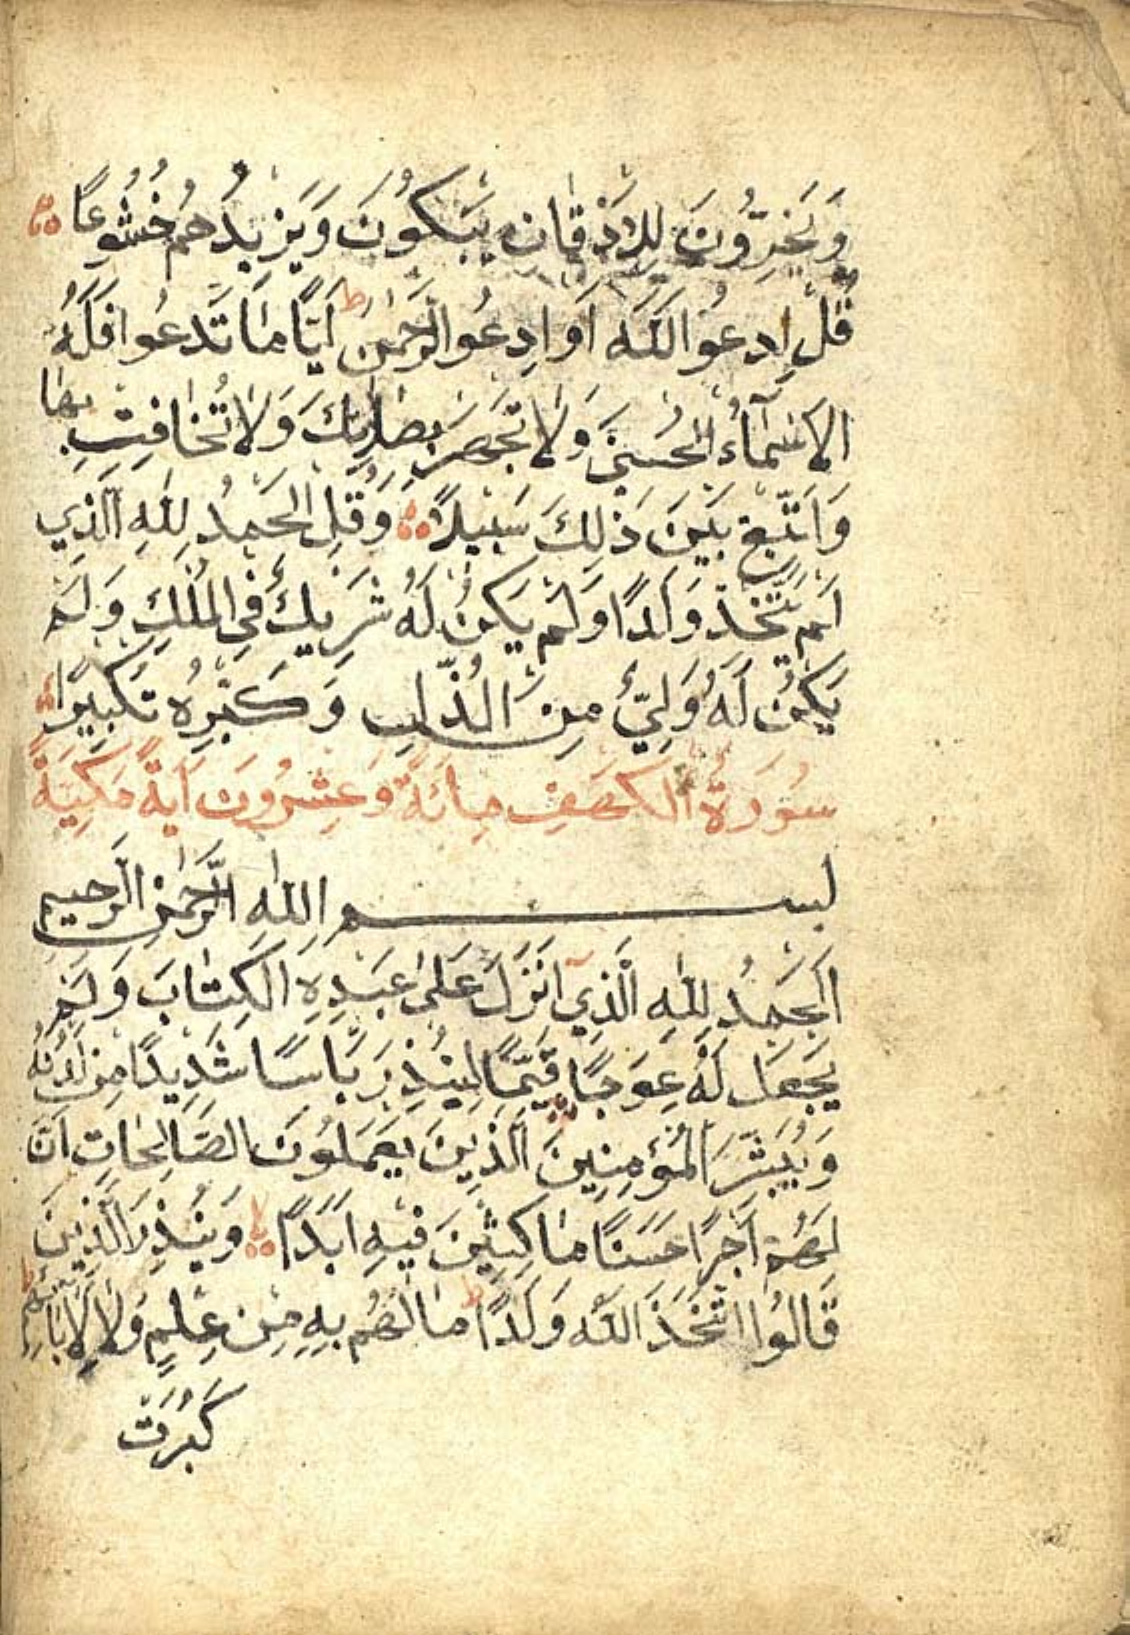 وَيَخِرُّونَ لِلْاَذْقَانِ يَبْكُونَ وَيَزِيدُهُمْ خُشُوعًا
قُلِ ادْعُوا اللّٰهَ اَوِ ادْعُوا الرَّحْمٰنَ ط اَيًّا مَا تَدْعُوا فَلَهُ
الْاَسْمَآءُ الْحُسْنَى وَلَا تَجْهَرْ بِصَلَاتِكَ وَلَا تُخَافِتْ بِهَا
وَابْتَغِ بَيْنَ ذٰلِكَ سَبِيلًا وَقُلِ الْحَمْدُ لِلّٰهِ الَّذِي
لَمْ يَتَّخِذْ وَلَدًا وَلَمْ يَكُنْ لَهُ شَرِيكٌ فِي الْمُلْكِ وَلَمْ
يَكُنْ لَهُ وَلِيٌّ مِنَ الذُّلِّ وَكَبِّرْهُ تَكْبِيرًا
سُورَةُ الْكَهْفِ مِائَةٌ وَعِشْرُونَ اٰيَةً مَكِّيَّةً
بسم اللّٰهِ الرَّحْمٰنِ الرَّحِيمِ
اَلْحَمْدُ لِلّٰهِ الَّذِي اَنْزَلَ عَلَى عَبْدِهِ الْكِتَابَ وَلَمْ
يَجْعَلْ لَهُ عِوَجًا قَيِّمًا لِيُنْذِرَ بَاْسًا شَدِيدًا مِنْ لَدُنْهُ
وَيُبَشِّرَ الْمُؤْمِنِينَ الَّذِينَ يَعْمَلُونَ الصَّالِحَاتِ اَنَّ
لَهُمْ اَجْرًا حَسَنًا مَاكِثِينَ فِيهِ اَبَدًا وَيُنْذِرَ الَّذِينَ
قَالُوا اتَّخَذَ اللّٰهُ وَلَدًا ط مَا لَهُمْ بِهِ مِنْ عِلْمٍ وَلَا لِاٰبَائِهِمْ ط
كَبُرَتْ